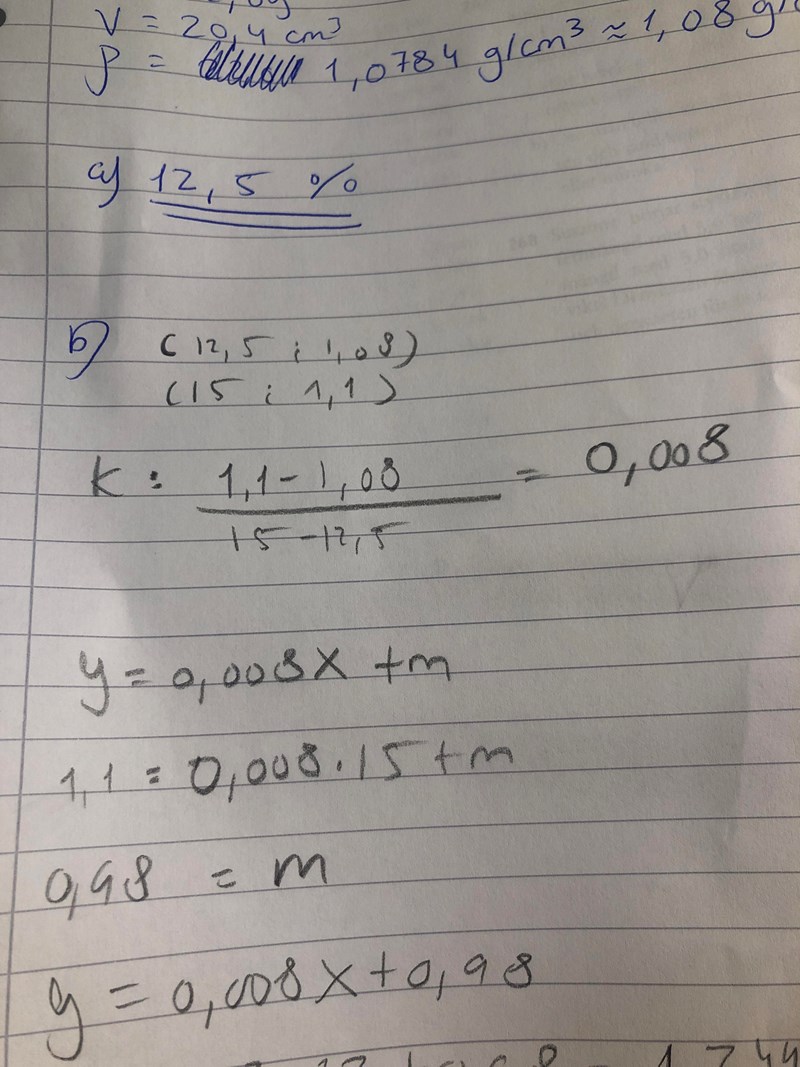 V = 20,4 cm³
ρ = 1,0784 g/cm³ ≈ 1,08 g/
a) 12,5 %
b) (12,5 ; 1,08)
(15 ; 1,1)
k: 1,1-1,08 = 0,008
15-12,5
y = 0,008x +m
1,1 = 0,008·15+m
0,98 = m
y = 0,008x+0,98